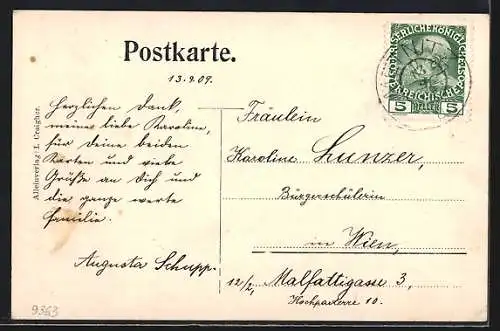 Postkarte.
13.9.09.
KAISERLICHE KÖNIGLICHE
ÖSTERREICHISCHE
5 HELLER 5
Herzlichen Dank,
meine liebe Karoline,
für deine beiden
Karten und viele
Grüße an Dich und
die ganze werte
Familie.
Augusta Schupp.
Fräulein
Karoline Lunzer,
Bürgerschülerin
in Wien,
12/2, Malfattigasse 3,
Hochparterre 10.
Alleinverlag: L. Craigher.
9363